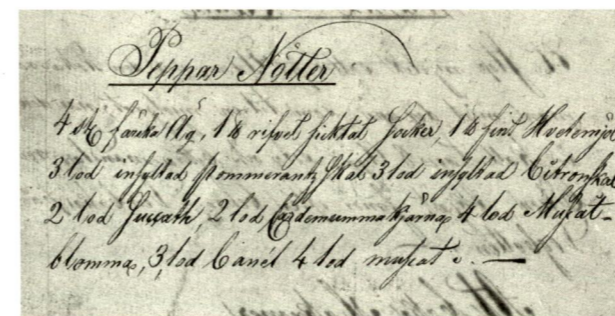 Peppar Nötter
4 st färska Ägg, 1 ℔ rifvet siktat Socker 1 ℔ fint Hvetemjöl
3 lod insyltad Pommerantz Skal 3 lod insyltad Citronskal
2 lod Succath, 2 lod Cardemumma kjärnor 4 lod Muscat-
blomma, 3 lod Canél 4 lod muscat